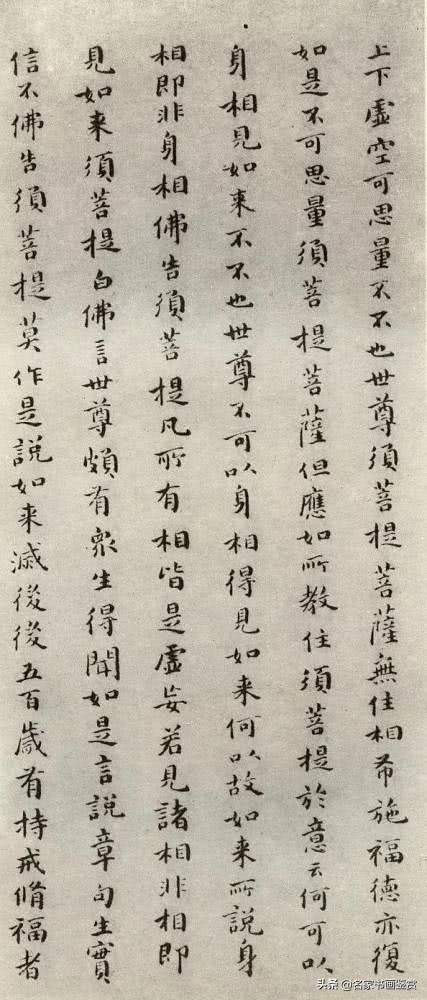 上下虚空可思量不不也世尊須菩提菩薩無住相布施福德亦復
如是不可思量須菩提菩薩但應如所教住須菩提於意云何可以
身相見如来不不也世尊不可以身相得見如来何以故如来所說身
相即非身相佛告須菩提凡所有相皆是虛妄若見諸相非相即
見如来須菩提白佛言世尊頗有衆生得聞如是言說章句生實
信不佛告須菩提莫作是說如来滅後後五百歲有持戒脩福者
头条@名家书画鉴赏